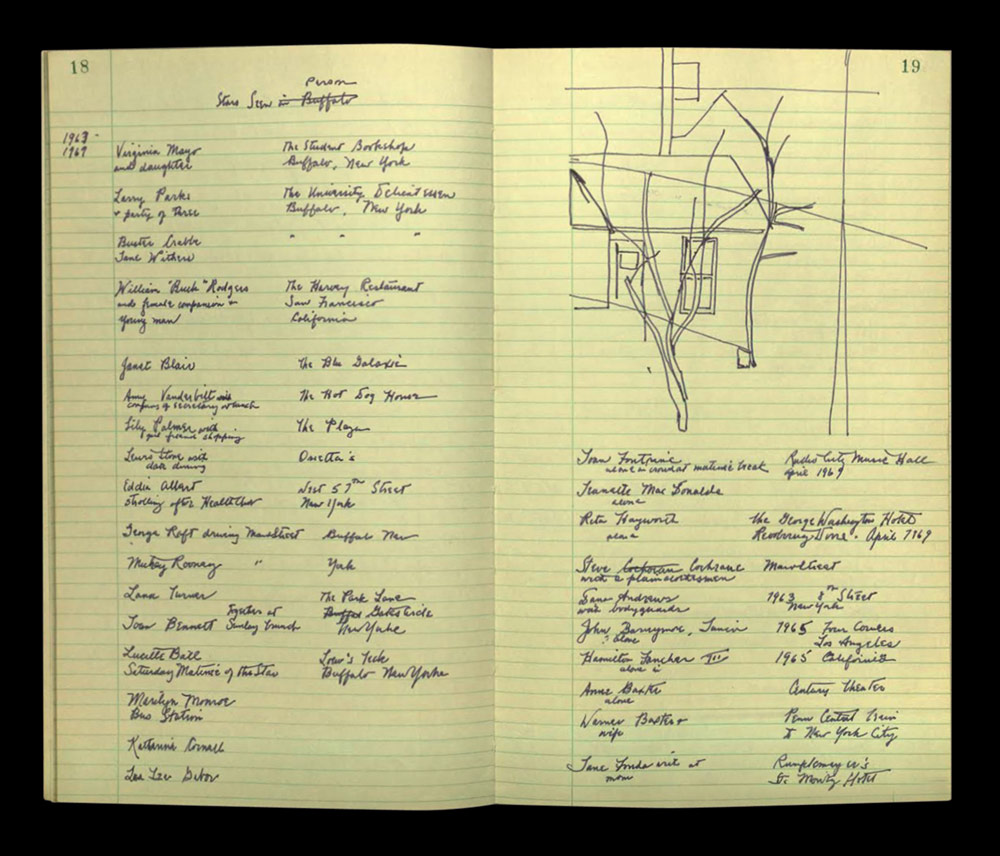 18
Person
Stars Seen in Buffalo
1963-
1969
Virginia Mayo The Student Bookshop
and daughter Buffalo, New York
Larry Parks The University Delicatessen
+ party of three Buffalo, New York
Buster Crabbe " " "
Jane Withers
William "Buck" Rodgers The Harvey Restaurant
and female companion + San Francisco
young man California
Janet Blair The Blue Galaxie
Amy Vanderbilt with The Hot Dog House
secretary at lunch
Lily Palmer with The Plaza
girl friend shopping
Lewis Stone with
date dining
Eddie Albert West 57th Street
strolling after Health Club New York
George Raft driving Main Street Buffalo New
Mickey Rooney " York
Lana Turner The Park Lane
Together at Buffalo Gates Circle
Joan Bennett Sunday brunch New York
Lucille Ball Loew's Teck
Saturday Matinee of the Star Buffalo New York
Marilyn Monroe
Bus Station
Katharine Cornell
Zsa Zsa Gabor
19
Joan Fontaine Radio City Music Hall
alone in crowd at matinee break April 1969
Jeanette MacDonald
alone
Rita Hayworth The George Washington Hotel
alone Revolving Door. April 1969
Steve Cochran Cochrane Main Street
with a plainclothesmen
Dana Andrews 1963 8th Street
with bodyguards New York
John Barrymore, Junior 1965 Four Corners
? alone Los Angeles
Hamilton Fancher III 1965 California
alone
Anne Baxter Century Theater
alone
Warner Baxter + Penn Central train
wife to New York City
Jane Fonda exit at Rumplemayer's
noon St. Moritz Hotel